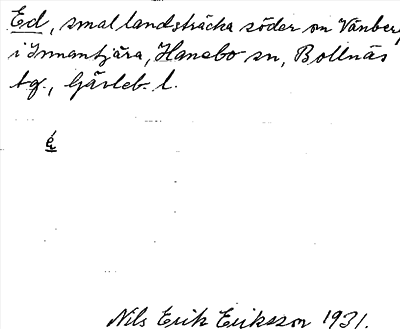 Ed, smal landsträcka söder om Vänberg
i Innantjära, Hanebo sn, Bollnäs
tg., Gävleb. l.
é
Nils Erik Eriksson 1931.